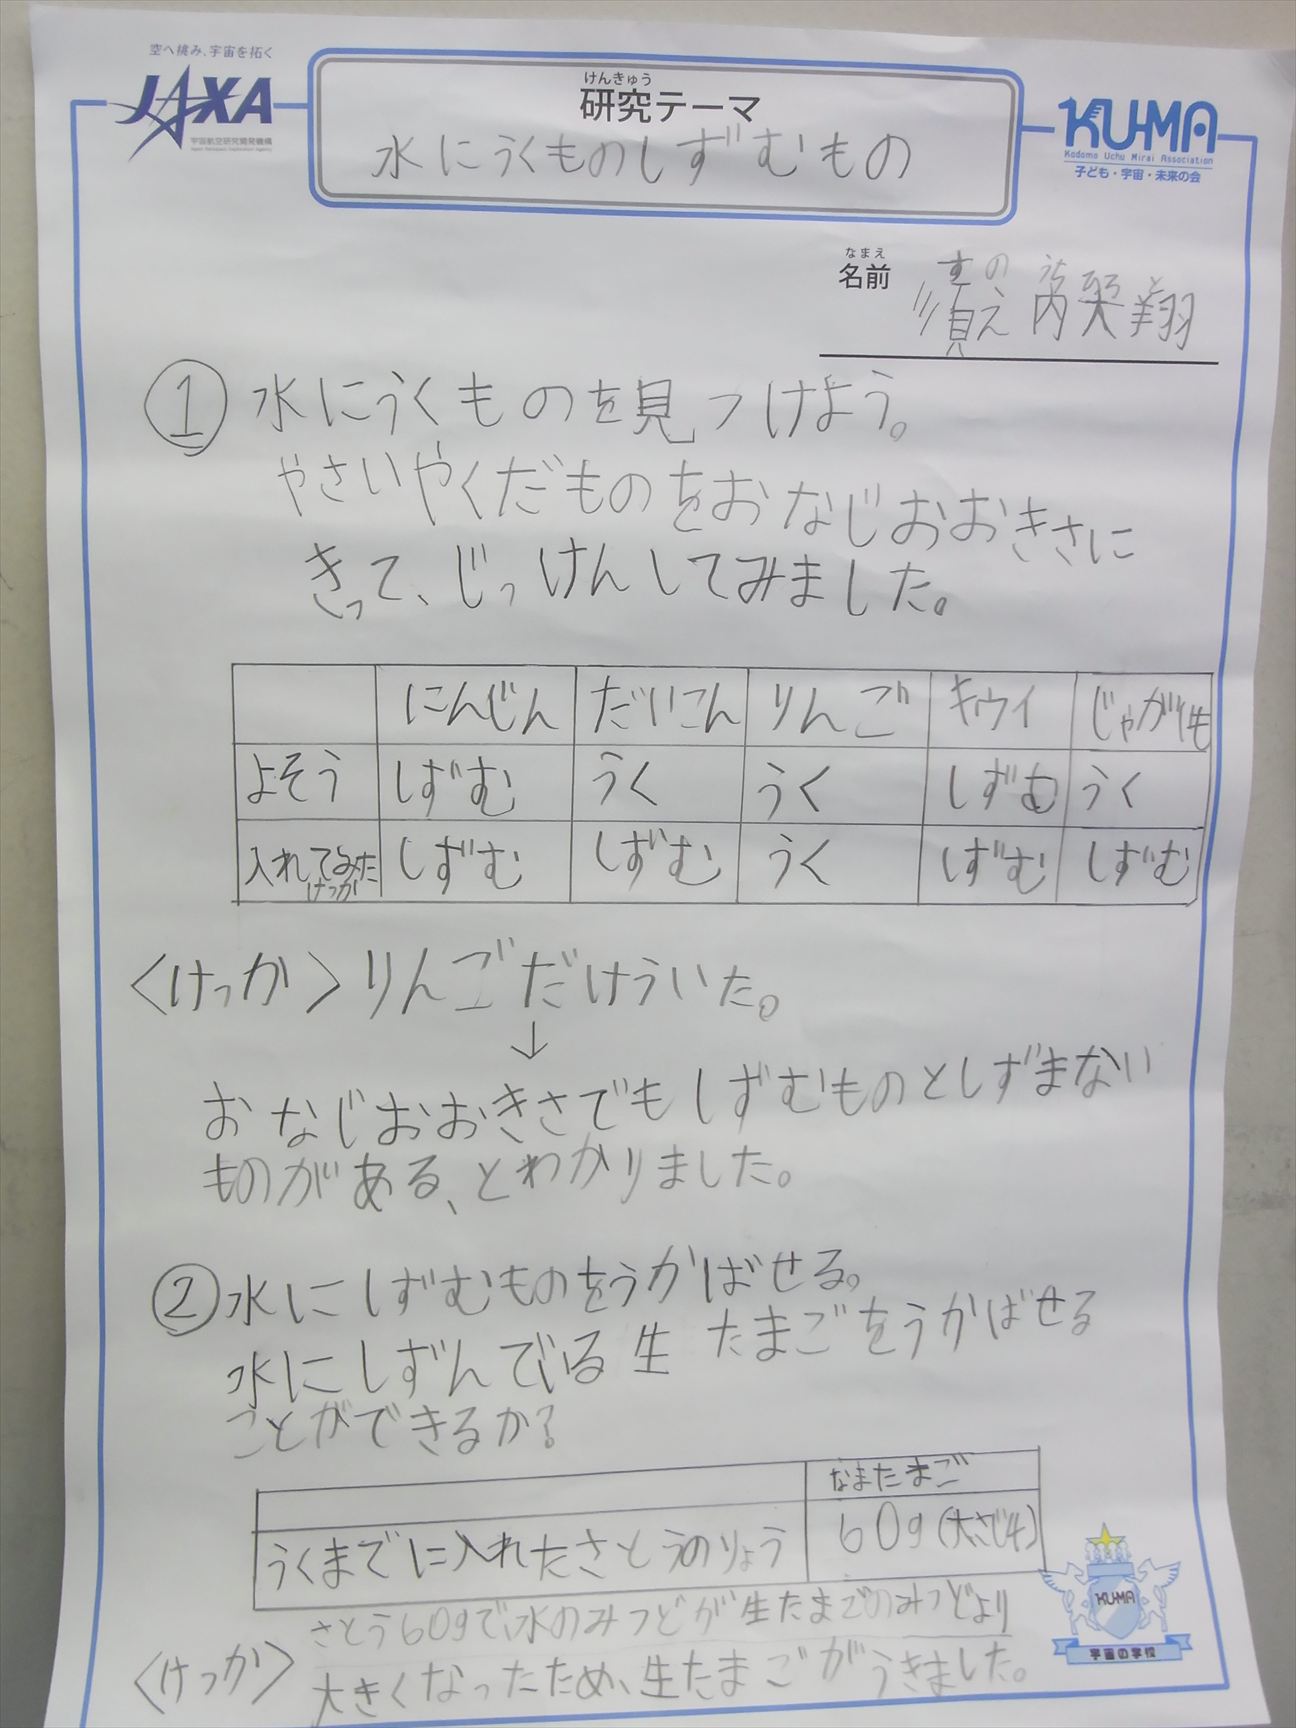 空へ挑み、宇宙を拓く
JAXA
宇宙航空研究開発機構
Japan Aerospace Exploration Agency
けんきゅう
研究テーマ
水にうくものしずむもの
KU-MA
Kodomo Uchu Mirai Association
子ども・宇宙・未来の会
なまえ
名前
すの うち と
内 翔
① 水にうくものを見つけよう。
やさいやくだものをおなじおおきさに
きって、じっけんしてみました。
にんじん だいこん りんご キウイ じゃがいも
よそう しずむ うく うく しずむ うく
入れてみた しずむ しずむ うく しずむ しずむ
けっか
〈けっか〉りんごだけういた。
↓
おなじおおきさでもしずむものとしずまない
ものがある、とわかりました。
② 水にしずむものをうかばせる。
水にしずんでいる生たまごをうかばせる
ことができるか?
なまたまご
うくまでに入れたさとうのりょう 60g(大さじ4)
さとう60gで、水のみつどが生たまごのみつどより
〈けっか〉大きくなったため、生たまごがうきました。
KU-MA
宇宙の学校